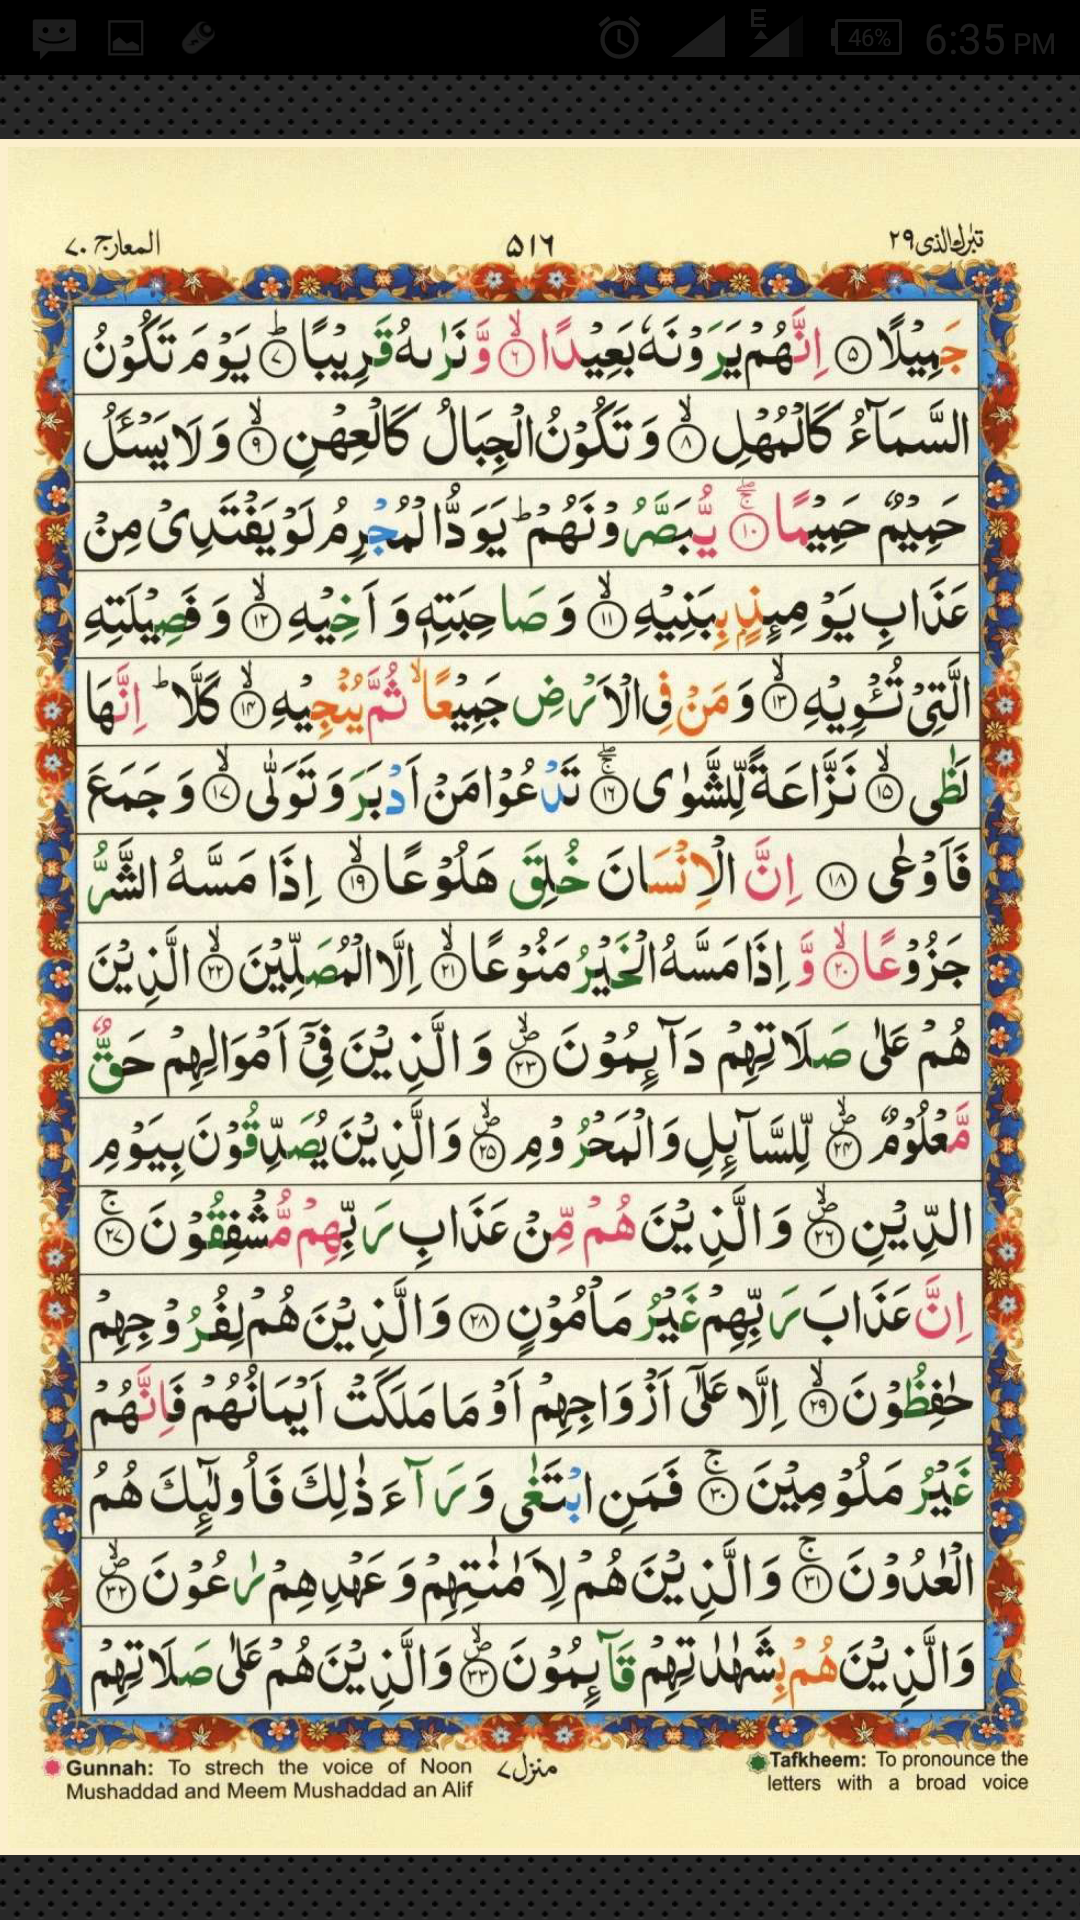 46%
E
6:35 PM
تبٰرك الذی ٢٩
٥١٦
المعارج ٧٠
جَمِيْلًا ﴿٥﴾ اِنَّهُمْ يَرَوْنَهٗ بَعِيْدًا ۙ﴿٦﴾ وَّ نَرٰىهُ قَرِيْبًا ؕ﴿٧﴾ يَوْمَ تَكُوْنُ
السَّمَآءُ كَالْمُهْلِ ۙ﴿٨﴾ وَ تَكُوْنُ الْجِبَالُ كَالْعِهْنِ ۙ﴿٩﴾ وَ لَا يَسْـَٔلُ
حَمِيْمٌ حَمِيْمًا ۚۖ﴿١٠﴾ يُّبَصَّرُوْنَهُمْ ؕ يَوَدُّ الْمُجْرِمُ لَوْ يَفْتَدِیْ مِنْ
عَذَابِ يَوْمِىِٕذٍۭ بِبَنِيْهِ ۙ﴿١١﴾ وَ صَاحِبَتِهٖ وَ اَخِيْهِ ۙ﴿١٢﴾ وَ فَصِيْلَتِهِ
الَّتِیْ تُـْٔوِيْهِ ۙ﴿١٣﴾ وَ مَنْ فِی الْاَرْضِ جَمِيْعًا ۙ ثُمَّ يُنْجِيْهِ ۙ﴿١٤﴾ كَلَّا ؕ اِنَّهَا
لَظٰی ۙ﴿١٥﴾ نَزَّاعَةً لِّلشَّوٰی ۚۖ﴿١٦﴾ تَدْعُوْا مَنْ اَدْبَرَ وَ تَوَلّٰی ۙ﴿١٧﴾ وَ جَمَعَ
فَاَوْعٰی ﴿١٨﴾ اِنَّ الْاِنْسَانَ خُلِقَ هَلُوْعًا ۙ﴿١٩﴾ اِذَا مَسَّهُ الشَّرُّ
جَزُوْعًا ۙ﴿٢٠﴾ وَّ اِذَا مَسَّهُ الْخَيْرُ مَنُوْعًا ۙ﴿٢١﴾ اِلَّا الْمُصَلِّيْنَ ۙ﴿٢٢﴾ الَّذِيْنَ
هُمْ عَلٰی صَلَاتِهِمْ دَآىِٕمُوْنَ ۪ۙ﴿٢٣﴾ وَ الَّذِيْنَ فِیْۤ اَمْوَالِهِمْ حَقٌّ
مَّعْلُوْمٌ ۪ۙ﴿٢٤﴾ لِّلسَّآىِٕلِ وَ الْمَحْرُوْمِ ۪ۙ﴿٢٥﴾ وَ الَّذِيْنَ يُصَدِّقُوْنَ بِيَوْمِ
الدِّيْنِ ۪ۙ﴿٢٦﴾ وَ الَّذِيْنَ هُمْ مِّنْ عَذَابِ رَبِّهِمْ مُّشْفِقُوْنَ ۚ﴿٢٧﴾
اِنَّ عَذَابَ رَبِّهِمْ غَيْرُ مَاْمُوْنٍ ﴿٢٨﴾ وَ الَّذِيْنَ هُمْ لِفُرُوْجِهِمْ
حٰفِظُوْنَ ۙ﴿٢٩﴾ اِلَّا عَلٰۤی اَزْوَاجِهِمْ اَوْ مَا مَلَكَتْ اَيْمَانُهُمْ فَاِنَّهُمْ
غَيْرُ مَلُوْمِيْنَ ۚ﴿٣٠﴾ فَمَنِ ابْتَغٰی وَرَآءَ ذٰلِكَ فَاُولٰٓىِٕكَ هُمُ
الْعٰدُوْنَ ۚ﴿٣١﴾ وَ الَّذِيْنَ هُمْ لِاَمٰنٰتِهِمْ وَ عَهْدِهِمْ رٰعُوْنَ ۪ۙ﴿٣٢﴾
وَ الَّذِيْنَ هُمْ بِشَهٰدٰتِهِمْ قَآىِٕمُوْنَ ۪ۙ﴿٣٣﴾ وَ الَّذِيْنَ هُمْ عَلٰی صَلَاتِهِمْ
Gunnah: To strech the voice of Noon
Mushaddad and Meem Mushaddad an Alif
منزل ٧
Tafkheem: To pronounce the
letters with a broad voice